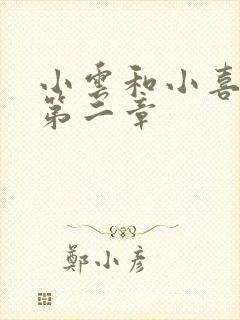 小雲和小喜
第二章
鄭小彥